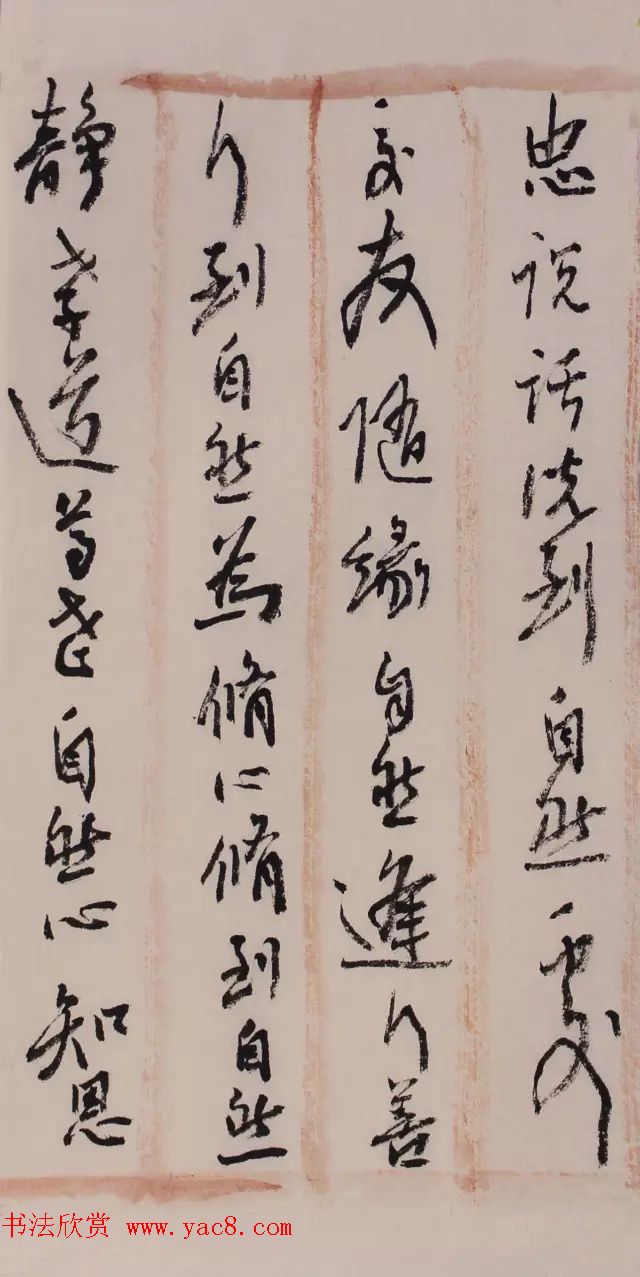 忠说话说到自然
交友随缘自然逢行善
行到自然为修心修到自然
静孝道尊老自然心知恩
书法欣赏 www.yac8.com